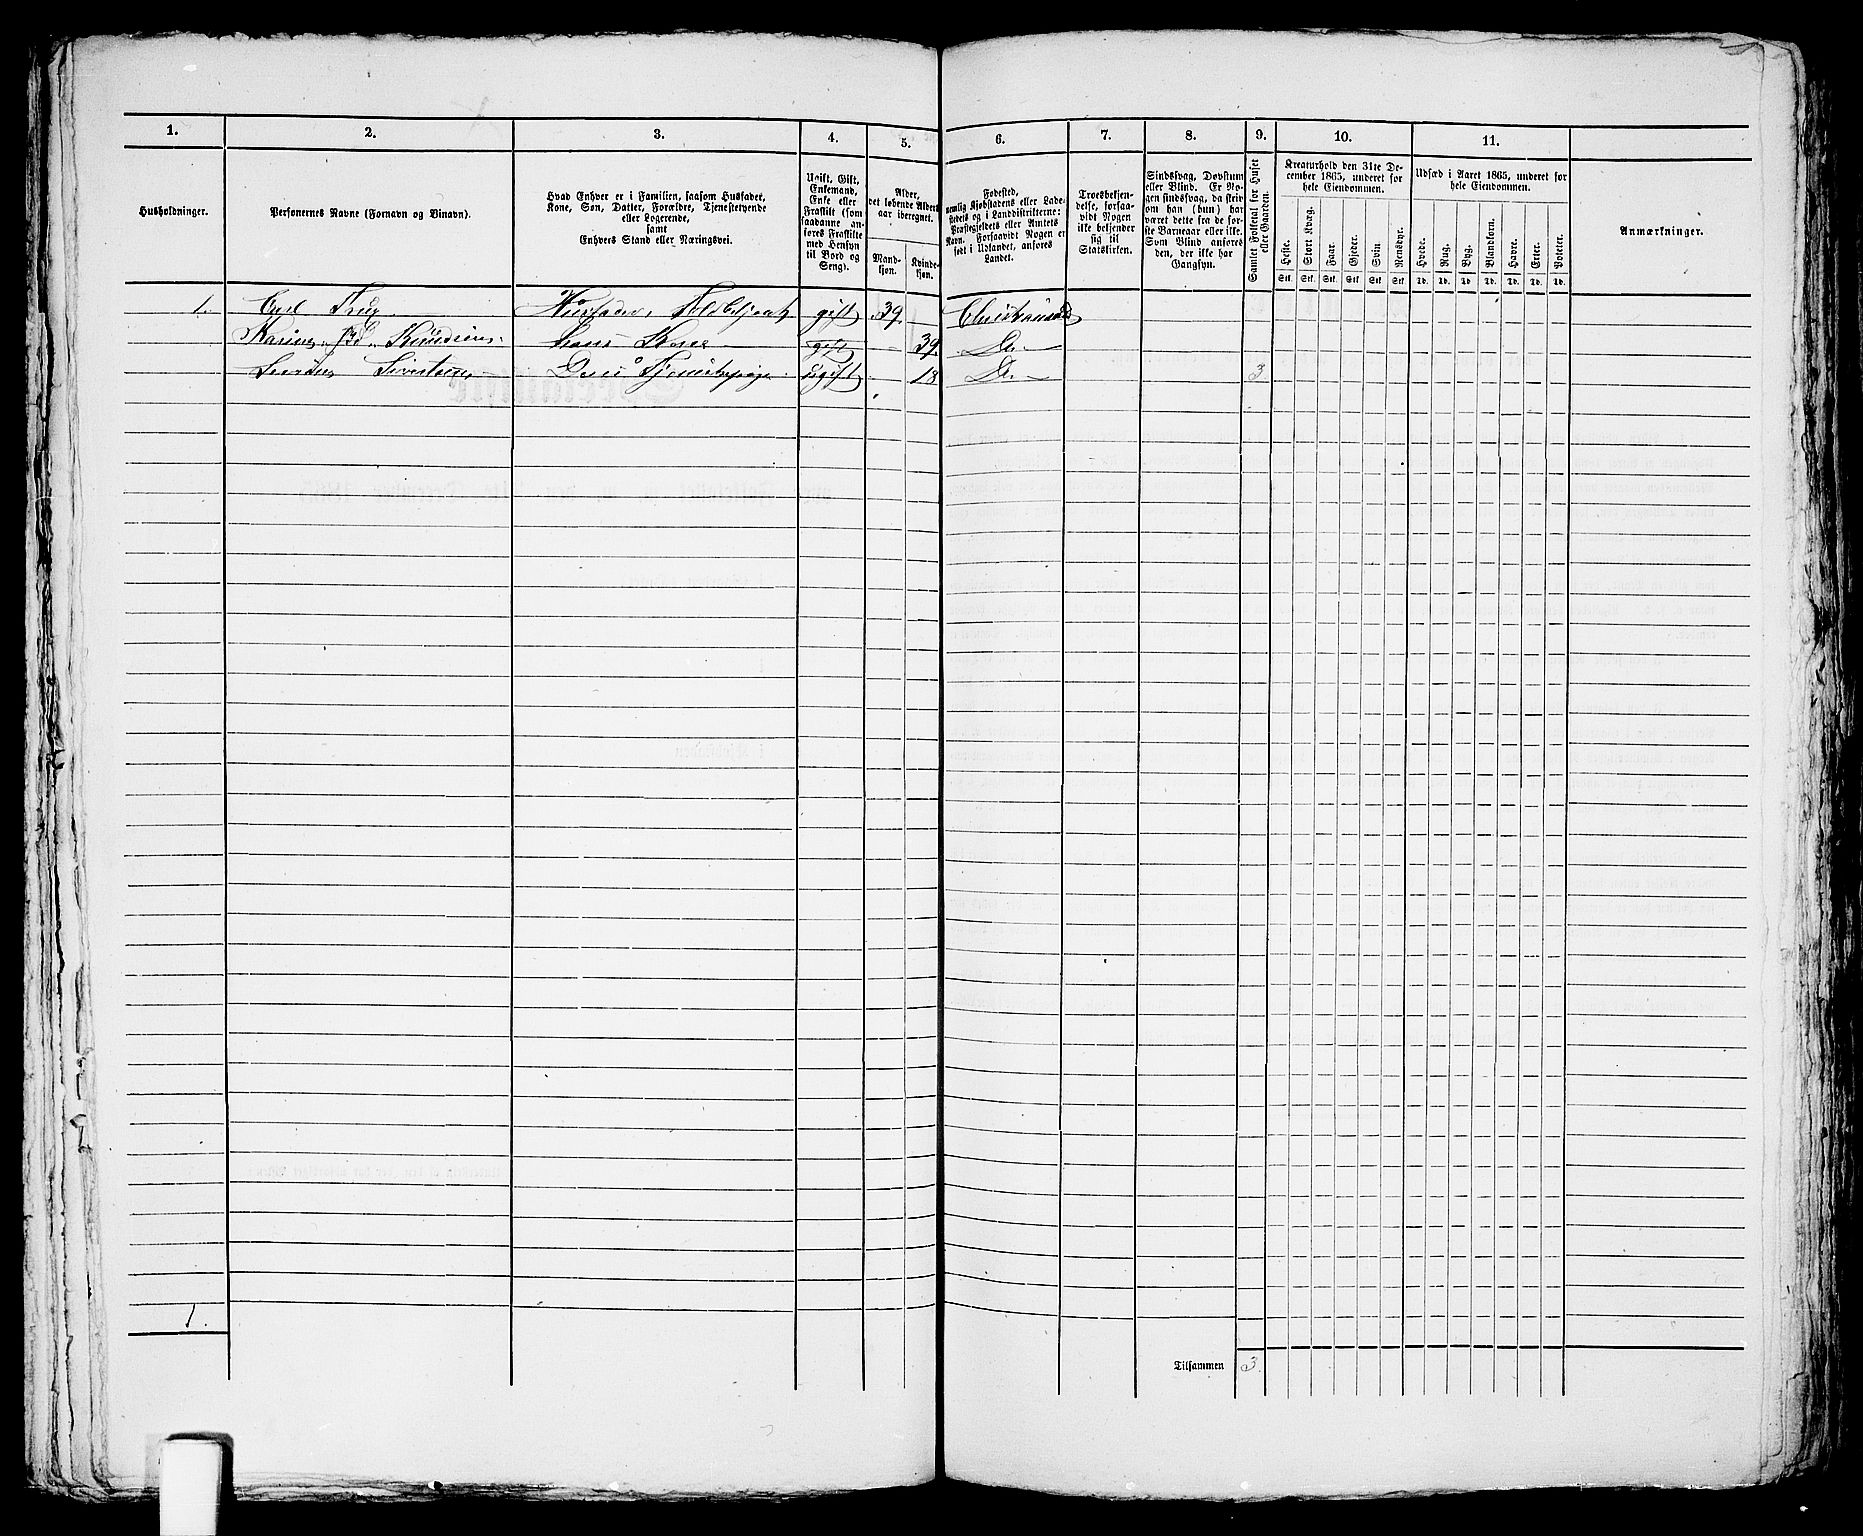 1.
2.
3.
4.
5.
6.
7.
8.
9.
10.
11.
Husholdninger.
Personernes Navne (Fornavn og Binavn).
Hvad Enhver er i Familien, saasom Husfader,
Kone, Søn, Datter, Forældre, Tjenestetyende
eller Logerende,
samt
Enhvers Stand eller Næringsvei.
Ugift, Gift,
Enkemand,
Enke eller
Fraskilt (som
saadanne an-
føres Fraskilte
med Hensyn
til Bord og
Seng).
Alder,
det løbende Alders-
aar iberegnet.
Mand-
kjøn.
Kvinde-
kjøn.
Fødested,
nemlig Kjøbstadens eller Lade-
stedets og i Landdistrikterne:
Præstegjeldets eller Amtets
Navn. Forsaavidt Nogen er
født i Udlandet, anføres
Landet.
Troesbekjen-
delse, forsaa-
vidt Nogen
ikke bekjender
sig til
Statskirken.
Sindssvag, Døvstum
eller Blind. Er No-
gen sindssvag, da skriv
om han (hun) har
været dette fra de før-
ste Barneaar eller ikke.
Som Blind anføres
den, der ikke har
Gangsyn.
Samlet Folketal for Huset
eller Gaarden.
Kreaturhold den 31te De-
cember 1865, underet for
hele Eiendommen.
Heste.
Stort Kvæg.
Faar.
Gjeder.
Svin
Rensdyr.
Stk. Stk. Stk. Stk. Stk. Stk.
Udsæd i Aaret 1865, underet for
hele Eiendommen.
Hvede.
Rug.
Byg.
Blandkorn.
Havre.
Erter.
Poteter.
Td. Td. Td. Td. Td. Td. Td.
Anmærkninger.
1. Carl Krug Husfader, gift 39. Christiansand
Karine Knudsen hans Kone gift 39. Do
Sivertsen Deres Tjenestepige ugift 18 Do 3
1.
Tilsammen 3.